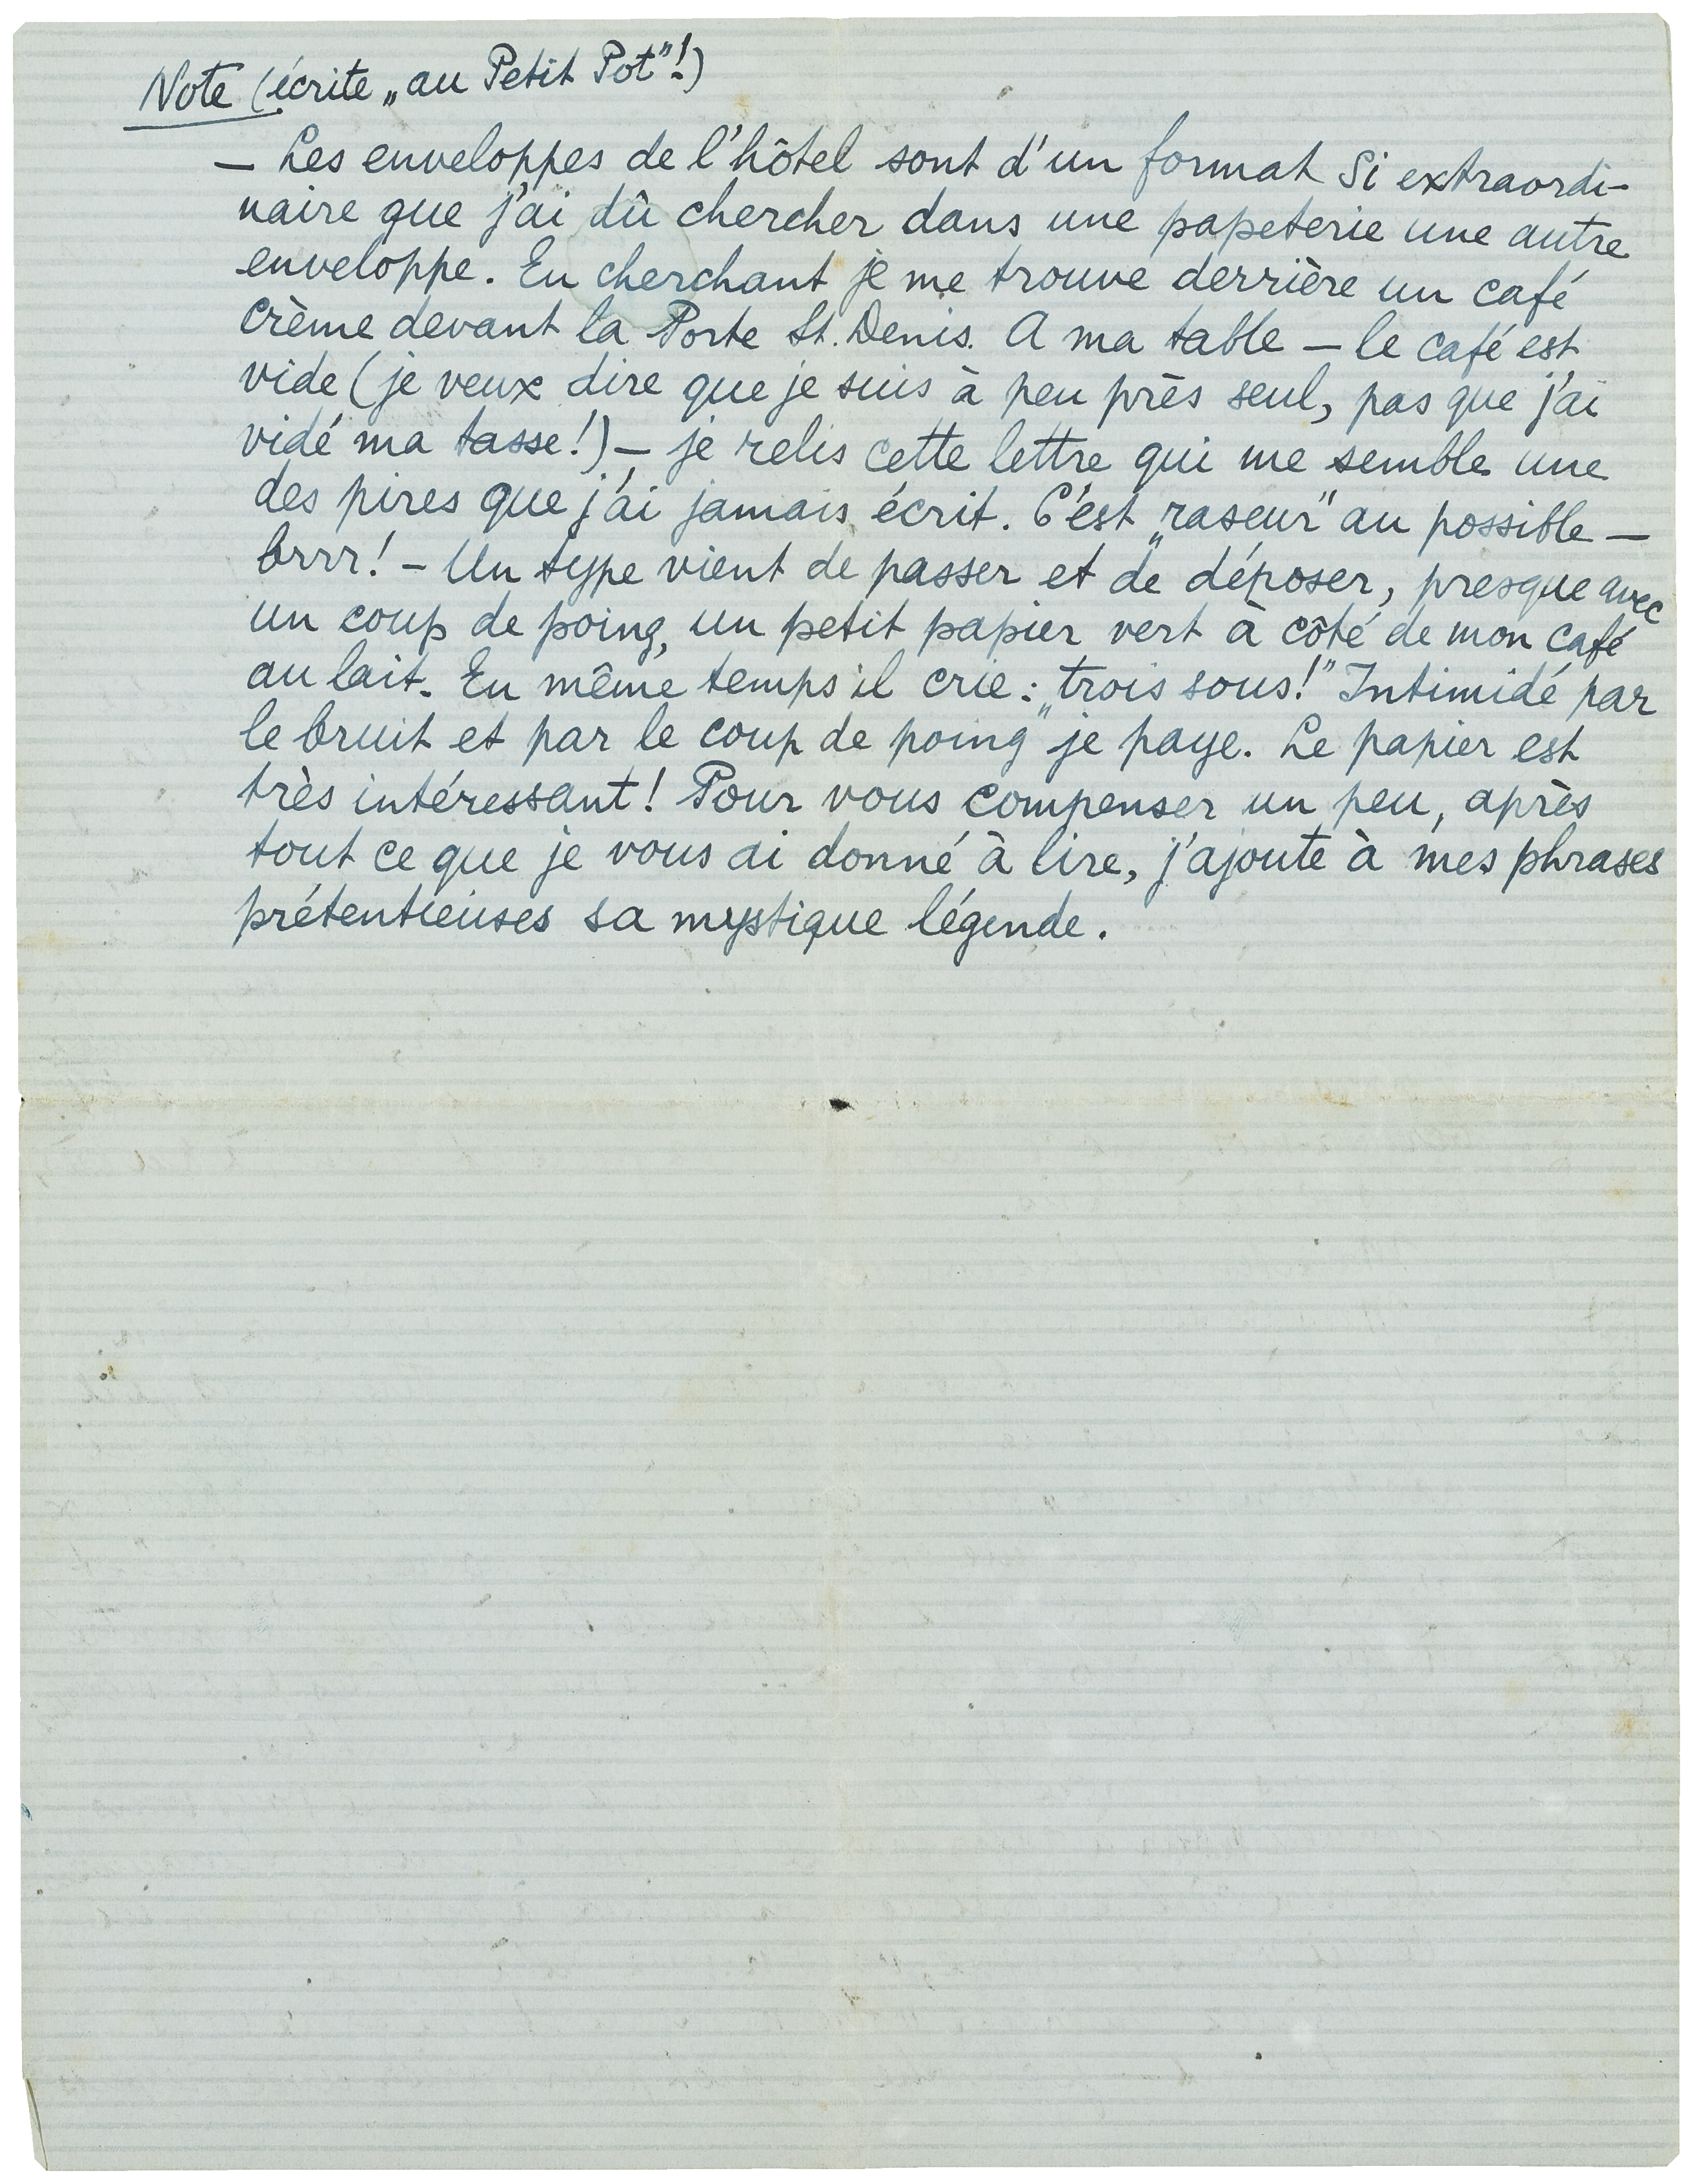 Note (écrite „au Petit Pot"!)
– Les enveloppes de l'hôtel sont d'un format si extraordi-
naire que j'ai dû chercher dans une papeterie une autre
enveloppe. En cherchant je me trouve derrière un café
crème devant la Porte St. Denis. A ma table – le café est
vide (je veux dire que je suis à peu près seul, pas que j'ai
vidé ma tasse!) – je relis cette lettre qui me semble une
des pires que j'ai jamais écrit. C'est „raseur" au possible –
brrr! – Un type vient de passer et de déposer, presque avec
un coup de poing, un petit papier vert à côté de mon café
au lait. En même temps il crie: „trois sous!" Intimidé par
le bruit et par le coup de poing je paye. Le papier est
très intéressant! Pour vous compenser un peu, après
tout ce que je vous ai donné à lire, j'ajoute à mes phrases
prétentieuses sa mystique légende.